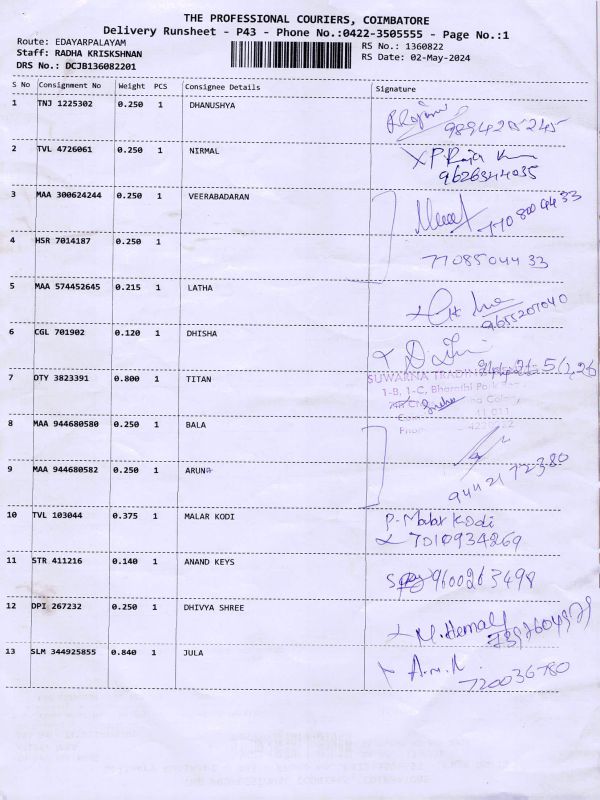 THE PROFESSIONAL COURIERS, COIMBATORE
Delivery Runsheet - P43 - Phone No.:0422-3505555 - Page No.:1
Route: EDAYARPALAYAM
Staff: RADHA KRISKSHNAN
DRS No.: DCJB136082201
RS No.: 1360822
RS Date: 02-May-2024
S No Consignment No Weight PCS Consignee Details Signature
1 TNJ 1225302 0.250 1 DHANUSHYA
9894205245
2 TVL 4726061 0.250 1 NIRMAL X P. Raja
9626344035
3 MAA 300624244 0.250 1 VEERABADARAN
4 HSR 7014187 0.250 1
7708504433
5 MAA 574452645 0.215 1 LATHA
9655207040
6 CGL 701902 0.120 1 DHISHA
7 DTY 3823391 0.800 1 TITAN
SUWARNA TRADING
1-B, 1-C, Bharathi Park
8 MAA 944680580 0.250 1 BALA
9 MAA 944680582 0.250 1 ARUNA
9442172380
10 TVL 103044 0.375 1 MALAR KODI P. Malar Kodi
7010934269
11 STR 411216 0.140 1 ANAND KEYS 9600263498
12 DPI 267232 0.250 1 DHIVYA SHREE
13 SLM 344925855 0.840 1 JULA
720036780